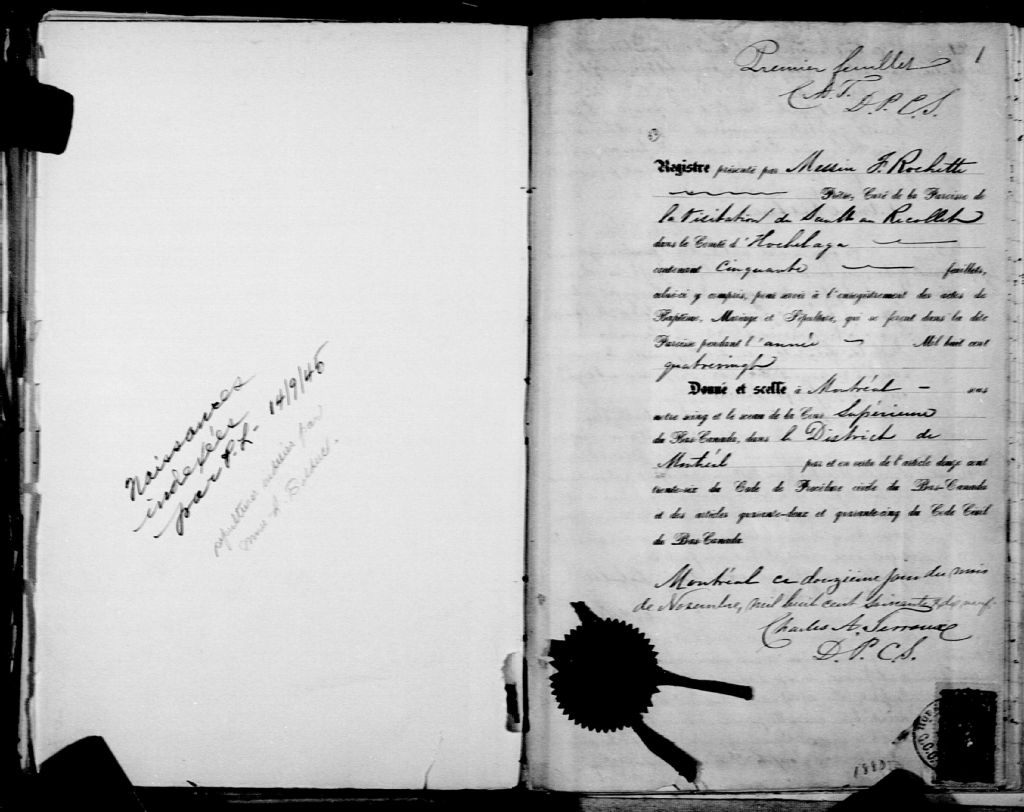 Naissances
indexées
par P. L. - 14/9/46
sépultures indexées par
Mme A.
1
Premier feuillet
C. A. T.
D. P. C. S.
Registre présenté par Messire F. Rochette
Prêtre, Curé de la Paroisse de
la Visitation du Sault au Recollet
dans le Comté d'Hochelaga
contenant Cinquante feuillets,
celui-ci y compris, pour servir à l'enregistrement des actes de
Baptême, Mariage et Sépulture, qui se feront dans la dite
Paroisse pendant l'année Mil huit cent
quatrevingt
Donné et scellé à Montréal - sous
notre seing et le sceau de la Cour Supérieure
du Bas-Canada, dans le District de
Montréal par et en vertu de l'article douze cent
trente-six du Code de Procédure civile du Bas-Canada
et des articles quarante-deux et quarante-cinq du Code Civil
du Bas-Canada.
Montréal ce douzième jour du mois
de Novembre, mil huit cent soixante & dix neuf.
Charles A. Terroux
D. P. C. S.
1880